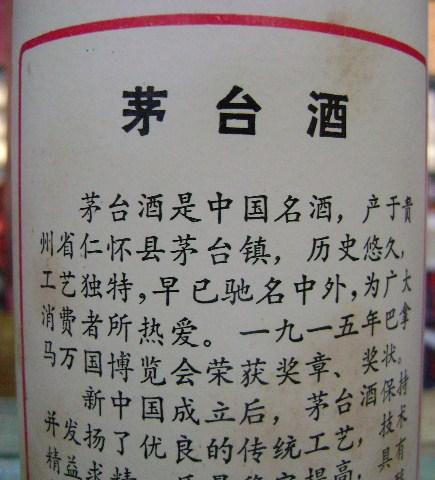 茅台酒
茅台酒是中国名酒，产于贵
州省仁怀县茅台镇，历史悠久，
工艺独特，早已驰名中外，为广大
消费者所热爱。一九一五年巴拿
马万国博览会荣获奖章、奖状。
新中国成立后，茅台酒保持
并发扬了优良的传统工艺，技术
精益求精
具有